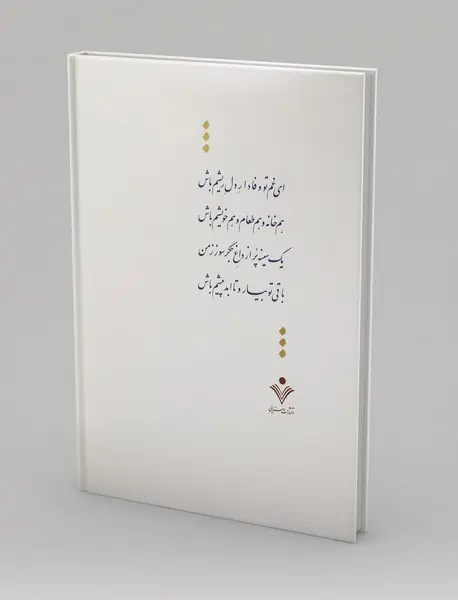 ای غم تو وفادار دل ریشم باش
هم خانه و هم طعام و هم خویشم باش
یک سینه پر از داغ جگرسوز ز من
باقی تو بیار و تا ابد پیشم باش
انتشارات